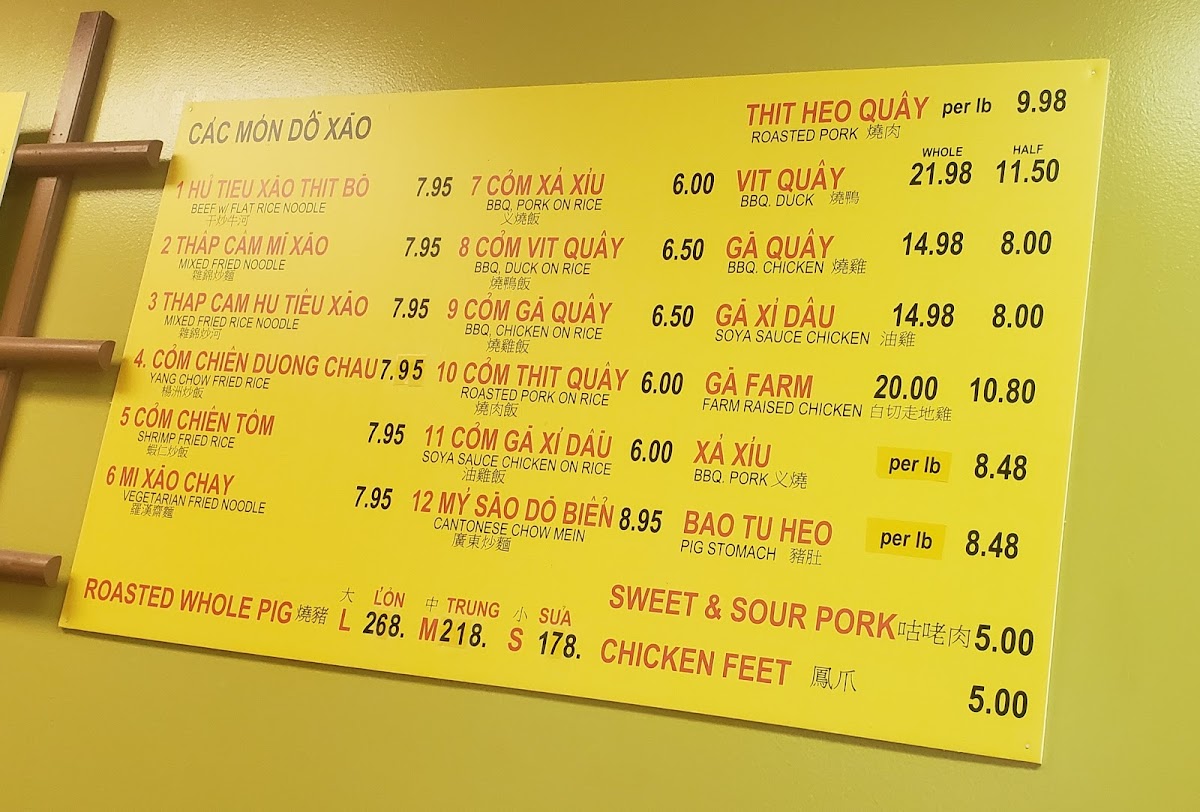 CÁC MÓN DỒ XÀO
1 HỦ TIEU XÀO THIT BÒ 7.95
BEEF w/ FLAT RICE NOODLE
干炒牛河
2 THÂP CÂM MÌ XÀO 7.95
MIXED FRIED NOODLE
雜錦炒麵
3 THAP CAM HU TIÊU XÀO 7.95
MIXED FRIED RICE NOODLE
雜錦炒河
4. CỎM CHIÊN DUONG CHAU 7.95
YANG CHOW FRIED RICE
楊洲炒飯
5 CỎM CHIÊN TÔM 7.95
SHRIMP FRIED RICE
蝦仁炒飯
6 MI XÀO CHAY 7.95
VEGETARIAN FRIED NOODLE
羅漢齋麵
7 CỎM XÁ XÍU 6.00
BBQ, PORK ON RICE
义燒飯
8 CỎM VIT QUÂY 6.50
BBQ, DUCK ON RICE
燒鴨飯
9 CỎM GÀ QUÂY 6.50
BBQ, CHICKEN ON RICE
燒雞飯
10 CỎM THIT QUÂY 6.00
ROASTED PORK ON RICE
燒肉飯
11 CỎM GÀ XÌ DÂÙ 6.00
SOYA SAUCE CHICKEN ON RICE
油雞飯
12 MỲ SÀO DÔ BIỂN 8.95
CANTONESE CHOW MEIN
廣東炒麵
THIT HEO QUÂY per lb 9.98
ROASTED PORK 燒肉
WHOLE HALF
VIT QUÂY 21.98 11.50
BBQ. DUCK 燒鴨
GÀ QUÂY 14.98 8.00
BBQ. CHICKEN 燒雞
GÀ XÌ DÂU 14.98 8.00
SOYA SAUCE CHICKEN 油雞
GÀ FARM 20.00 10.80
FARM RAISED CHICKEN 白切走地雞
XÁ XÍU per lb 8.48
BBQ. PORK 义燒
BAO TU HEO per lb 8.48
PIG STOMACH 豬肚
大 LỚN 中 TRUNG 小 SUẢ
ROASTED WHOLE PIG 燒豬 L 268. M 218. S 178.
SWEET & SOUR PORK 咕咾肉 5.00
CHICKEN FEET 鳳爪 5.00